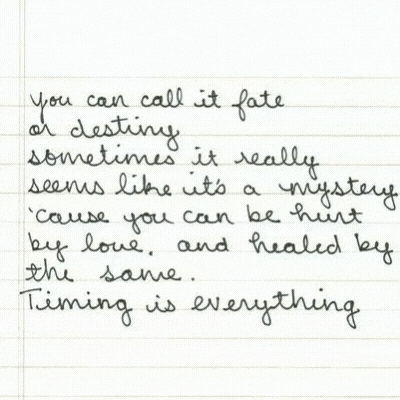 you can call it fate
or destiny
sometimes it really
seems like it's a mystery
'cause you can be hurt
by love, and healed by
the same.
Timing is everything